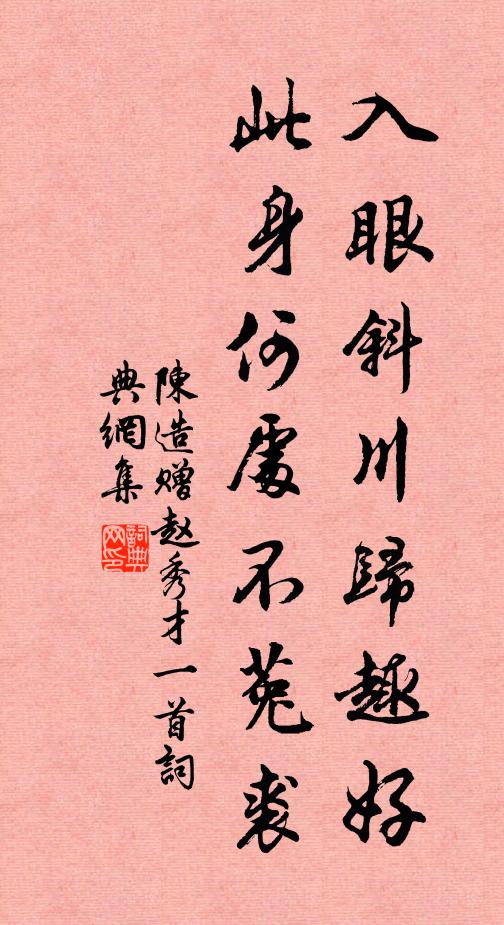 入眼斜川歸趣好
此身何處不菟裘
陳造贈赵秀才一首詞
典網集
詞典
网印